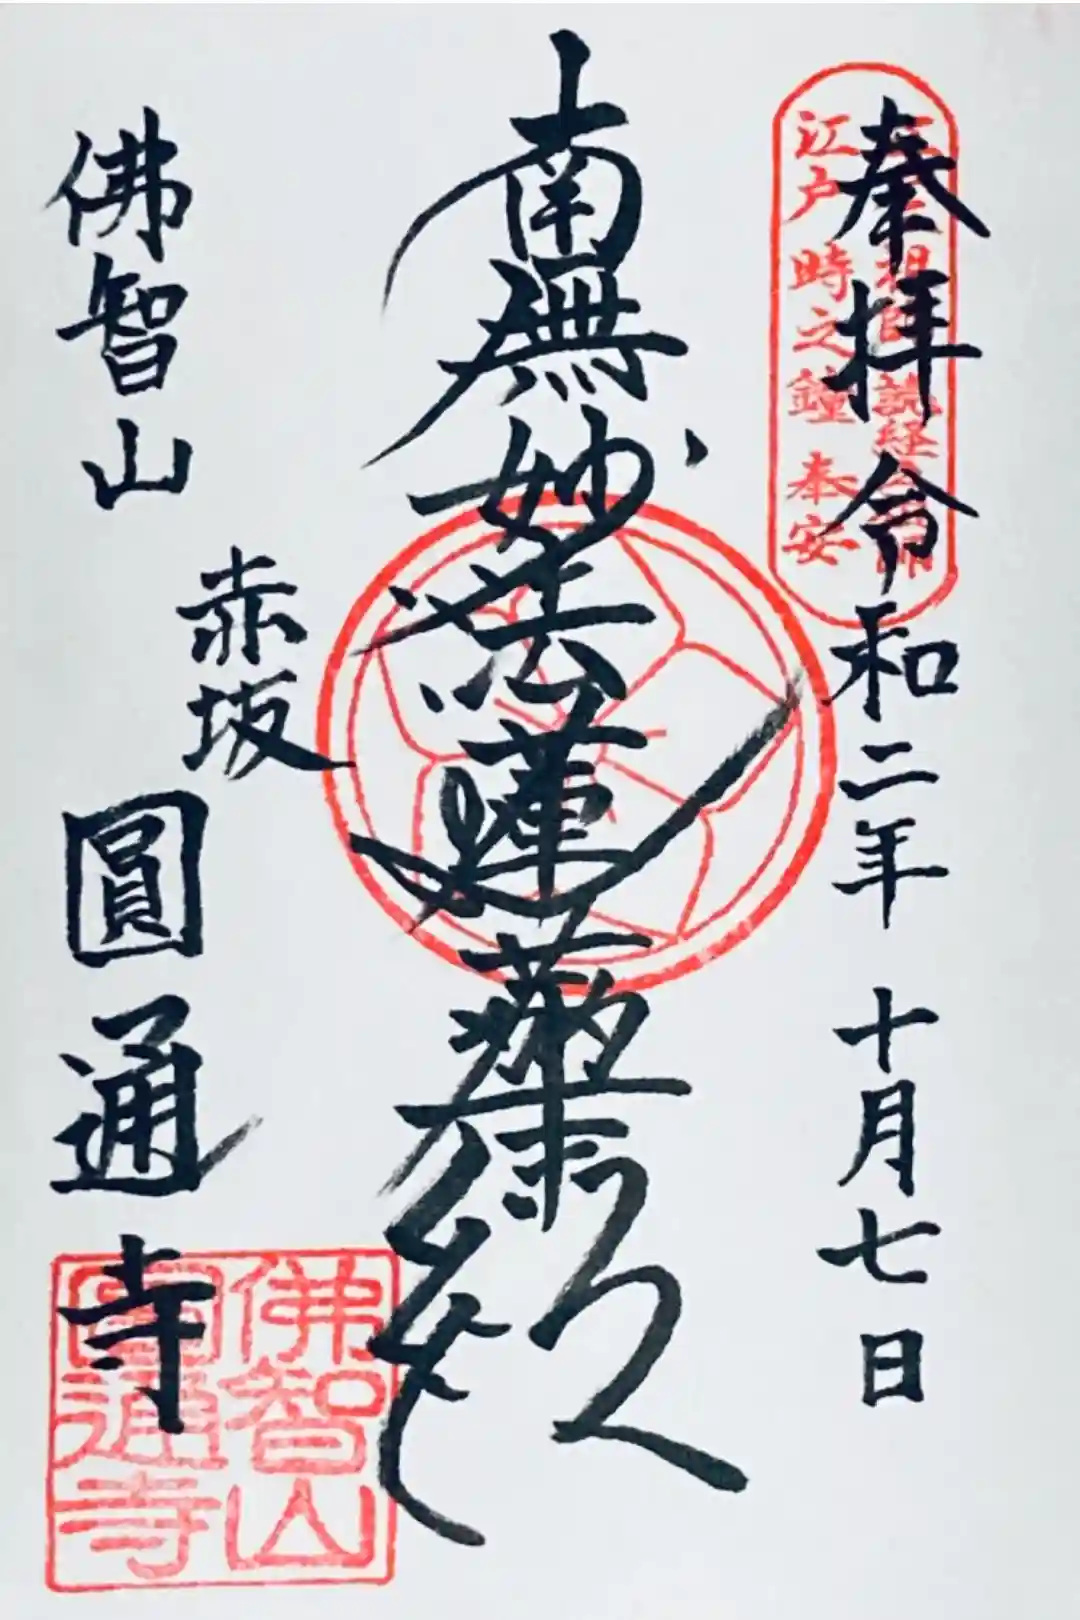 奉拝 令和二年 十月七日
祖師 読経
江戸時之鐘奉安
南無妙法蓮華経
佛智山
赤坂
圓通寺
佛智山
圓通寺